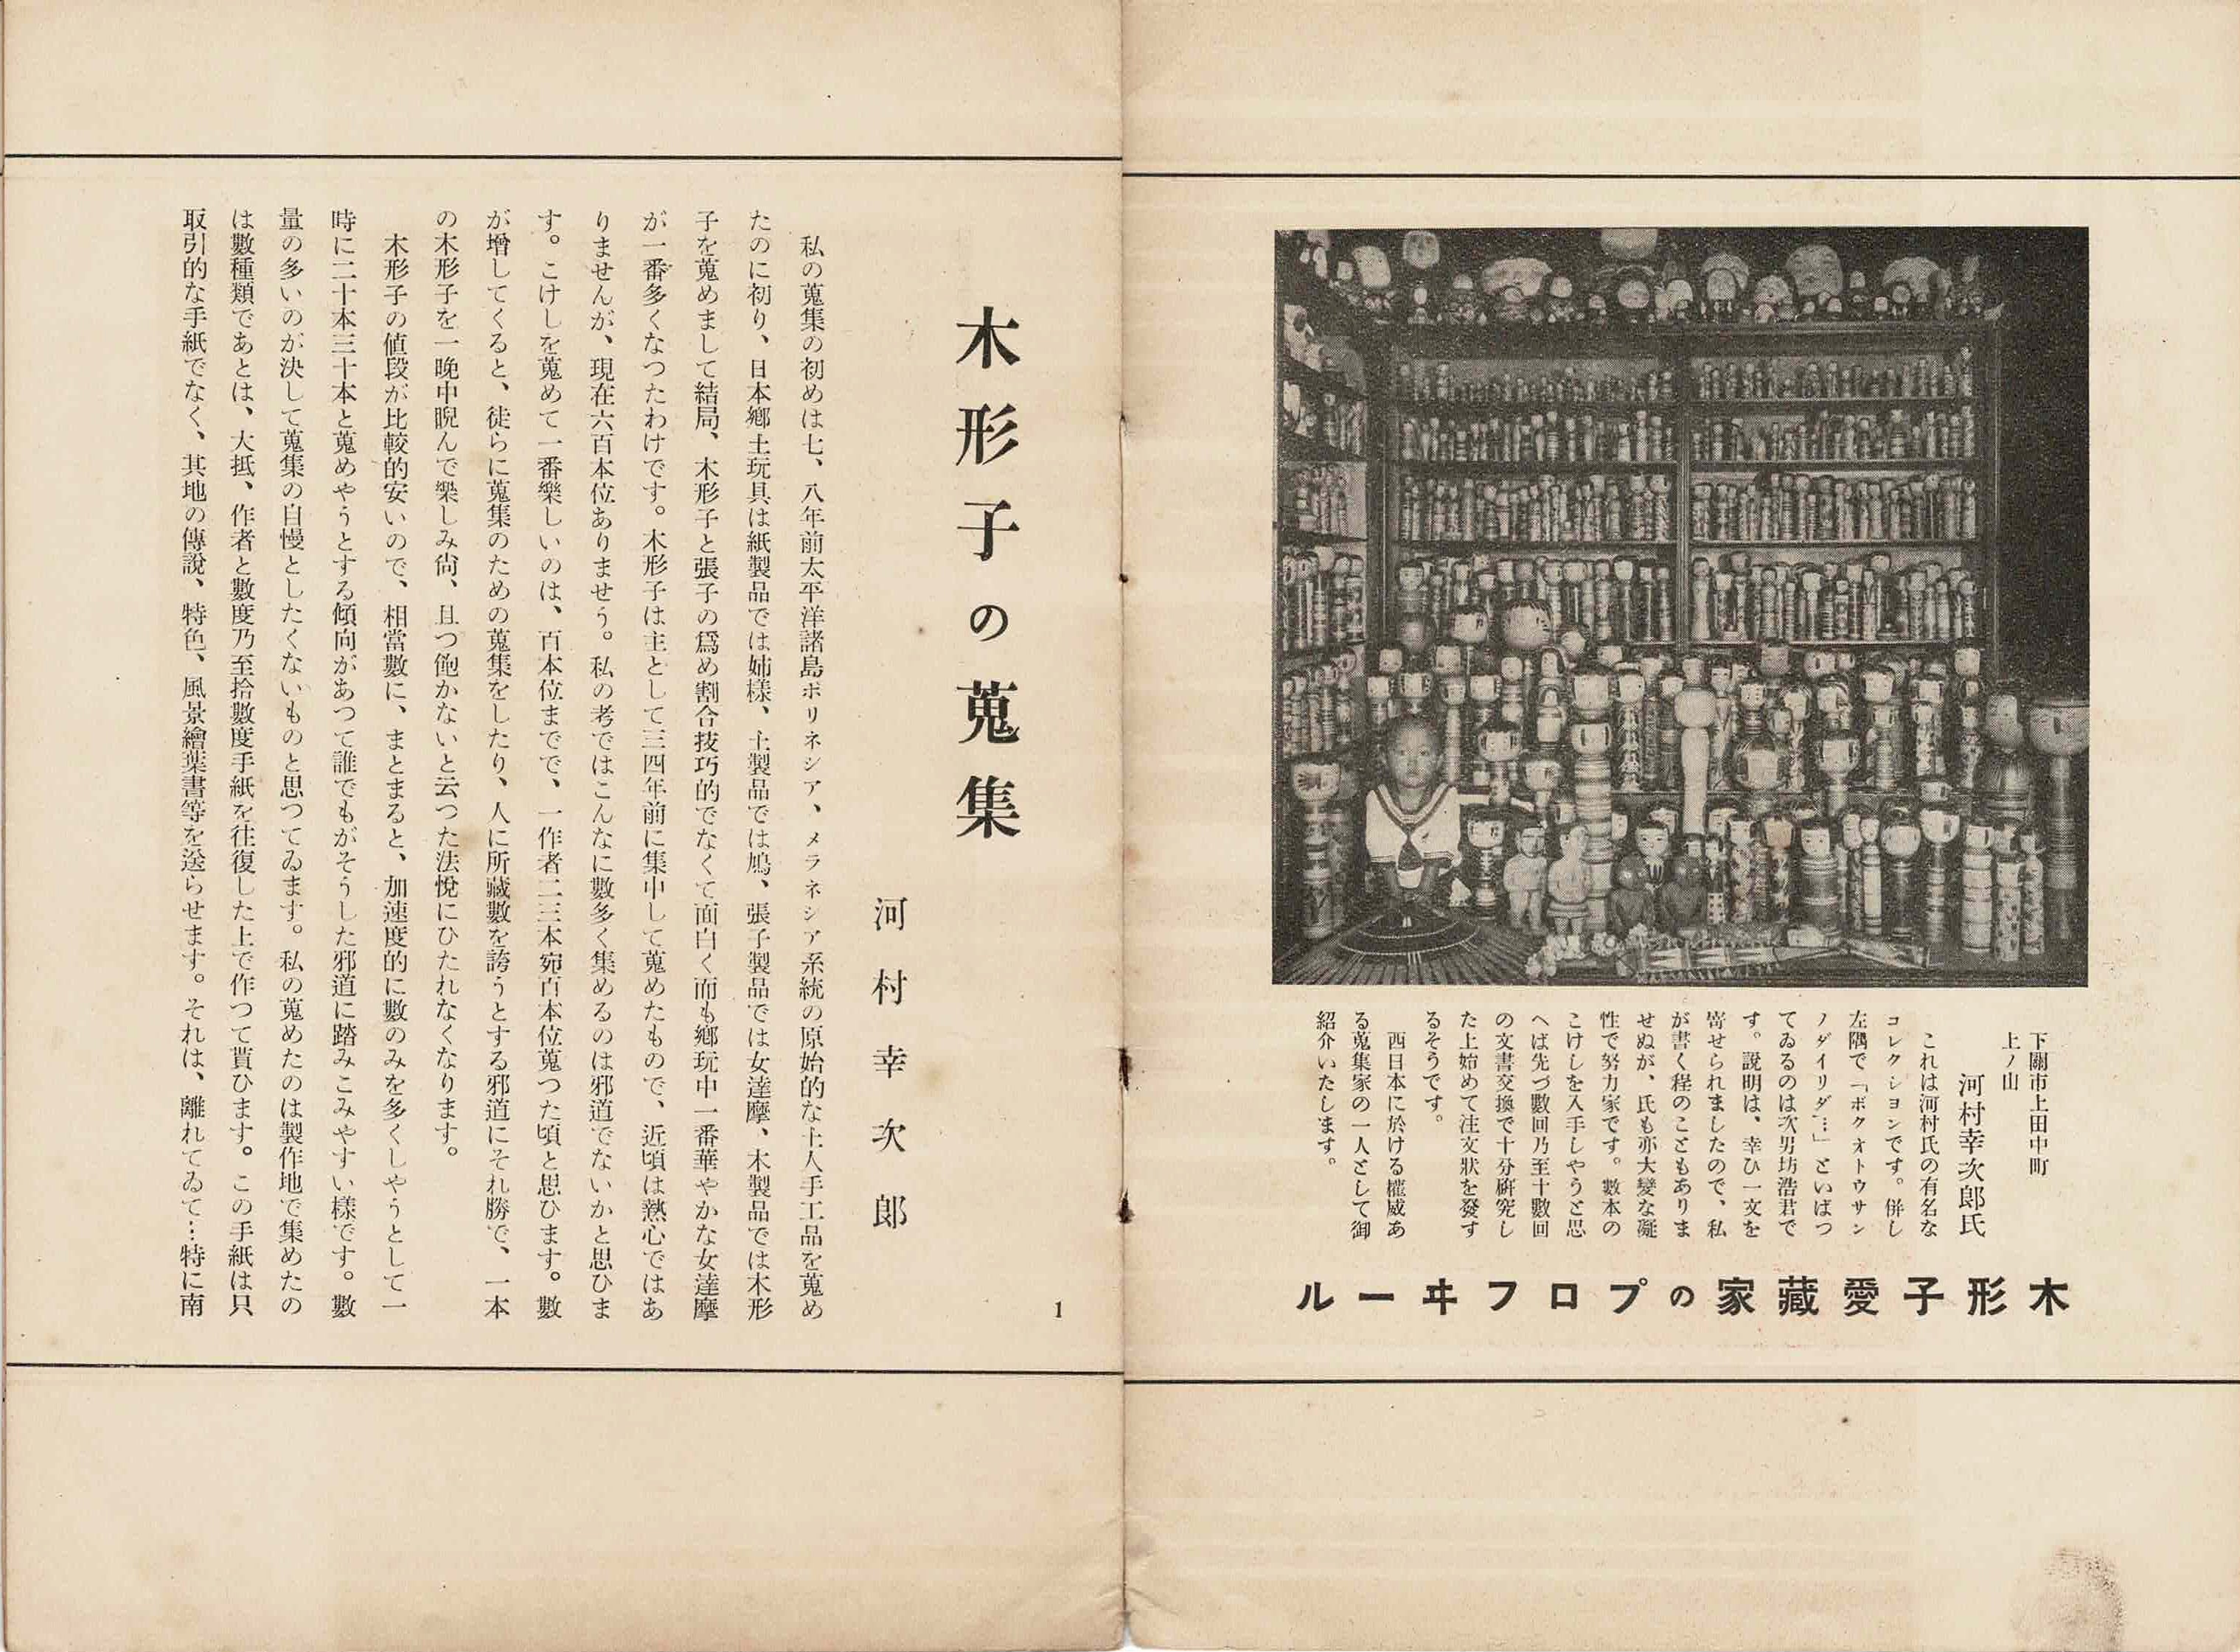 木形子愛藏家のプロフヰール
下關市上田中町
上ノ山
河村幸次郎氏
これは河村氏の有名な
コレクションです。併し
左隅で「ボクオトウサン
ノダイリダ…」といばつ
てゐるのは次男坊浩君で
す。説明は、幸ひ一文を
寄せられましたので、私
が書く程のこともありま
せぬが、氏も亦大變な凝
性で努力家です。數本の
こけしを入手しやうと思
へば先づ數回乃至十數回
の文書交換で十分硏究し
た上始めて注文狀を發す
るそうです。
西日本に於ける權威あ
る蒐集家の一人として御
紹介いたします。
1
木形子の蒐集
河村幸次郎
私の蒐集の初めは七、八年前太平洋諸島ポリネシア、メラネシア系統の原始的な土人手工品を蒐め
たのに初り、日本鄕土玩具は紙製品では姉樣、土製品では鳩、張子製品では女達摩、木製品では木形
子を蒐めまして結局、木形子と張子の爲め割合技巧的でなくて面白く而も鄕玩中一番華やかな女達摩
が一番多くなつたわけです。木形子は主として三四年前に集中して蒐めたもので、近頃は熱心ではあ
りませんが、現在六百本位ありませう。私の考ではこんなに數多く集めるのは邪道でないかと思ひま
す。こけしを蒐めて一番樂しいのは、百本位までで、一作者二三本宛百本位蒐つた頃と思ひます。數
が增してくると、徒らに蒐集のための蒐集をしたり、人に所藏數を誇うとする邪道にそれ勝で、一本
の木形子を一晚中睨んで樂しみ尙、且つ飽かないと云つた法悅にひたれなくなります。
木形子の値段が比較的安いので、相當數に、まとまると、加速度的に數のみを多くしやうとして一
時に二十本三十本と蒐めやうとする傾向があつて誰でもがそうした邪道に踏みこみやすい樣です。數
量の多いのが決して蒐集の自慢としたくないものと思つてゐます。私の蒐めたのは製作地で集めたの
は數種類であとは、大抵、作者と數度乃至拾數度手紙を往復した上で作つて貰ひます。この手紙は只
取引的な手紙でなく、其地の傳說、特色、風景繪葉書等を送らせます。それは、離れてゐて…特に南